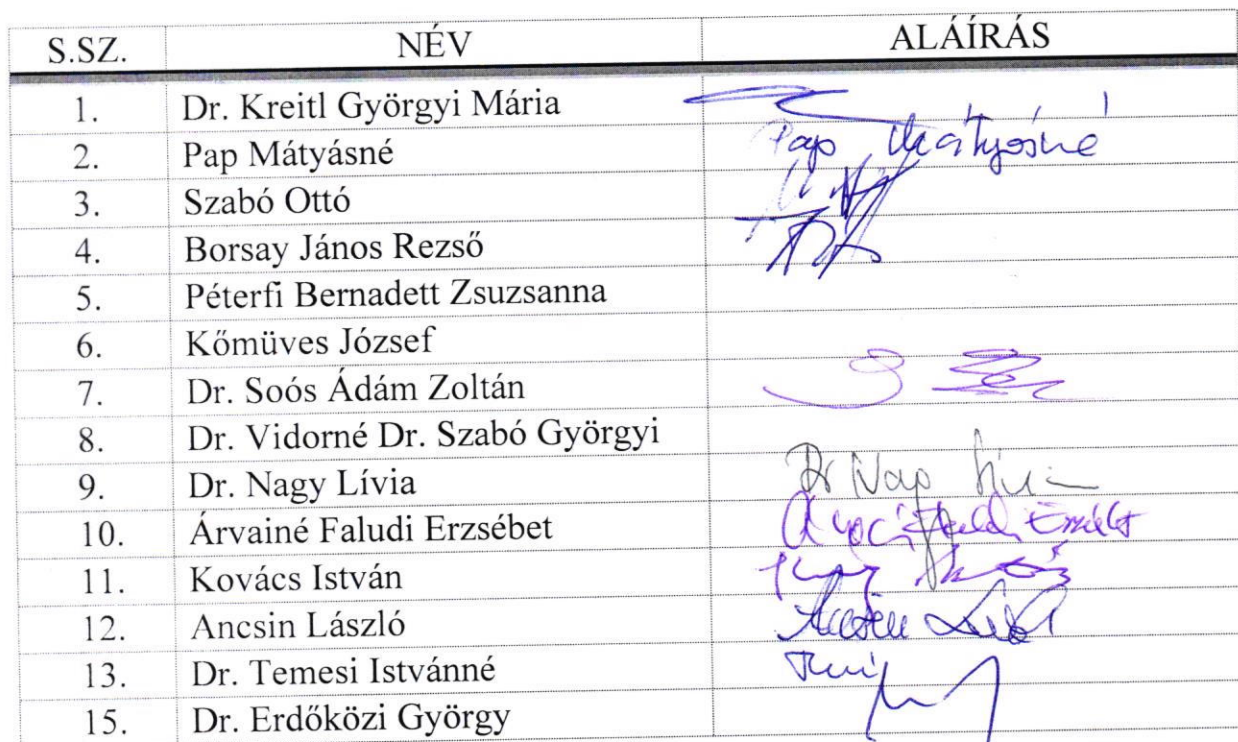 S.SZ. NÉV ALÁÍRÁS
1. Dr. Kreitl Györgyi Mária
2. Pap Mátyásné Pap Mátyásné
3. Szabó Ottó
4. Borsay János Rezső
5. Péterfi Bernadett Zsuzsanna
6. Kőmüves József
7. Dr. Soós Ádám Zoltán
8. Dr. Vidorné Dr. Szabó Györgyi
9. Dr. Nagy Lívia Dr Nagy
10. Árvainé Faludi Erzsébet
11. Kovács István
12. Ancsin László
13. Dr. Temesi Istvánné
15. Dr. Erdőközi György